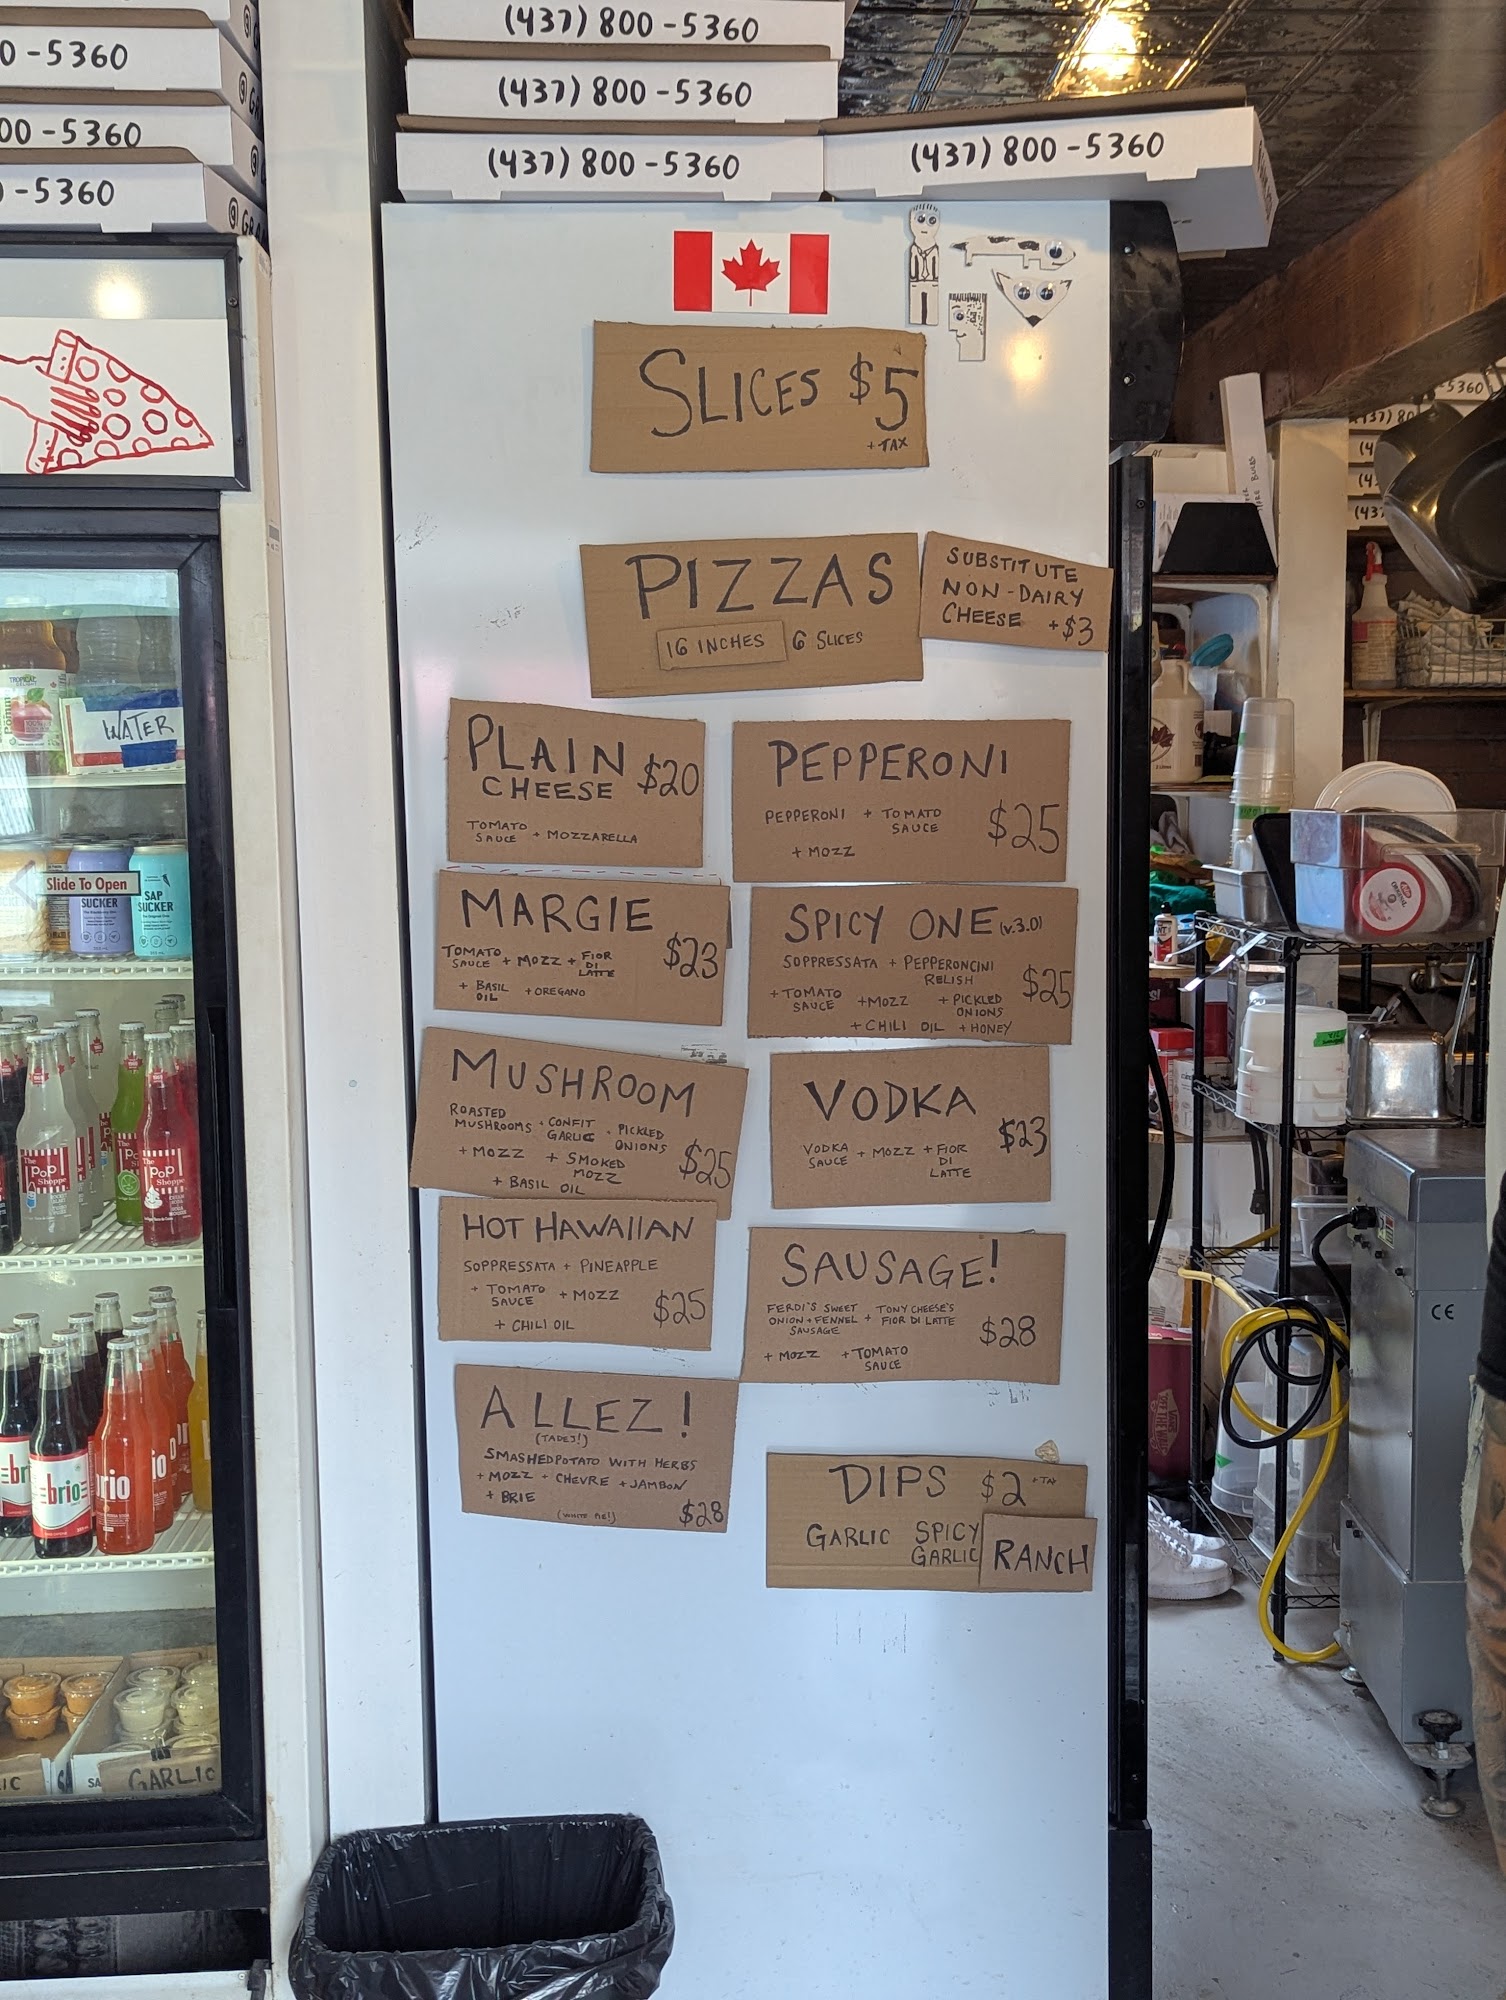 (437) 800-5360
(437) 800-5360
(437) 800-5360
(437) 800-5360
0-5360
00-5360
-5360
SLICES $5
+ TAX
PIZZAS
16 INCHES 6 SLICES
SUBSTITUTE
NON-DAIRY
CHEESE +$3
PLAIN
CHEESE $20
TOMATO
SAUCE + MOZZARELLA
PEPPERONI
PEPPERONI + TOMATO
SAUCE
+ MOZZ
$25
MARGIE
TOMATO
SAUCE + MOZZ + FIOR
DI
LATTE
+ BASIL
OIL + OREGANO
$23
SPICY ONE (v.3.0)
SOPPRESSATA + PEPPERONCINI
RELISH
+ TOMATO
SAUCE + MOZZ + PICKLED
ONIONS
+ CHILI OIL + HONEY
$25
MUSHROOM
ROASTED
MUSHROOMS + CONFIT
GARLIC + PICKLED
ONIONS
+ MOZZ + SMOKED
MOZZ
+ BASIL OIL
$25
VODKA
VODKA
SAUCE + MOZZ + FIOR
DI
LATTE
$23
HOT HAWAIIAN
SOPPRESSATA + PINEAPPLE
+ TOMATO
SAUCE + MOZZ
+ CHILI OIL
$25
SAUSAGE!
FERDI'S SWEET
ONION + FENNEL
SAUSAGE + TONY CHEESE'S
FIOR DI LATTE
+ MOZZ + TOMATO
SAUCE
$28
ALLEZ!
(TADEJ!)
SMASHED POTATO WITH HERBS
+ MOZZ + CHEVRE + JAMBON
+ BRIE
(WHITE PIE!)
$28
DIPS $2 + TAX
GARLIC SPICY
GARLIC RANCH
WATER
TROPICAL
DELIGHT
Slide To Open
SUCKER
SAP
SUCKER
The
Pop
Shoppe
The
Pop
Shoppe
brio
brio
GARLIC
IC
SA
CE